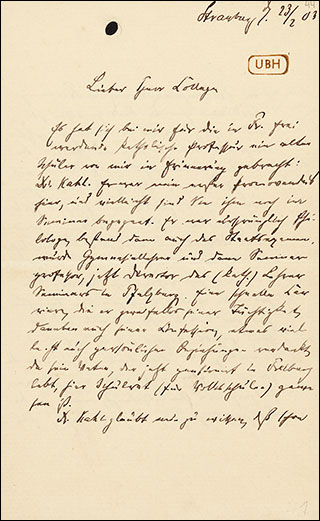 Straßburg, 23/2 03
UBH
Lieber Herr College
Es hat sich bei mir für die in Fr. frei
werdende katholische Professur ein alter
Schüler von mir in Erinnerung gebracht:
Dr. Kahl. Er war mein erster Promovend
hier, und vielleicht sind Sie ihm noch im
Seminar begegnet. Er war ursprünglich Phi-
lologe, bestand dann auch das Staatsexamen,
wurde Gymnasiallehrer und dann Seminar-
professor, jetzt Director des (kath.) Lehrer
Seminars in Pfalzburg. Eine schnelle Car-
riere, die er zweifellos seiner Tüchtigkeit,
daneben auch seiner Confession, etwas viel-
leicht auch persönlichen Beziehungen verdankt,
da sein Vater, der jetzt pensionirt in
lebt, hier Schulrat (für Volksschulen) gewe-
sen ist.
Dr. Kahl glaubt nun zu wissen, daß Ihre